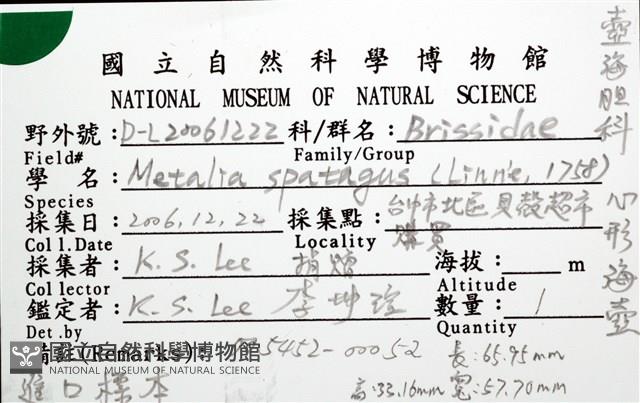 國立自然科學博物館
NATIONAL MUSEUM OF NATURAL SCIENCE
野外號:D-L20061222 科/群名:Brissidae
Field# Family/Group
學 名:Metalia spatagus (Linnie, 1758)
Species
採集日:2006.12.22 採集點:台中市北區貝殼超市
購買
Col l.Date Locality
採集者:K. S. Lee 捐贈 海拔: m
Col lector Altitude
鑑定者:K. S. Lee 李坤瑄 數量:1
Det.by Quantity
備註(Remarks) 5452-00052
長:65.95mm
進口標本 高:33.16mm 寬:57.70mm
壺海胆科 心形海壺
國立自然科學博物館
NATIONAL MUSEUM OF NATURAL SCIENCE